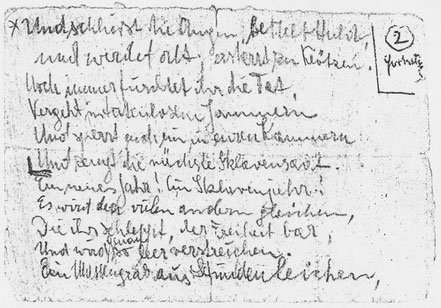 * Und schliesst die Augen, bettelt Huld,
und werdet alt, erstarrt zu Klötzen.
Noch immer fürchtet ihr die Tat,
Vergeht in tatenlosem Jammern
Und sperrt euch ein in euren Kammern
Und zeugt die nächste Sklavensaat.
Ein neues Jahr! Ein Sklavenjahr!
Es wird den vielen andern gleichen,
Die ihr schleppit, der Freiheit bar,
Und wird genau so leer verstreichen.
Ein Massengrab aus Stundenleichen,
2